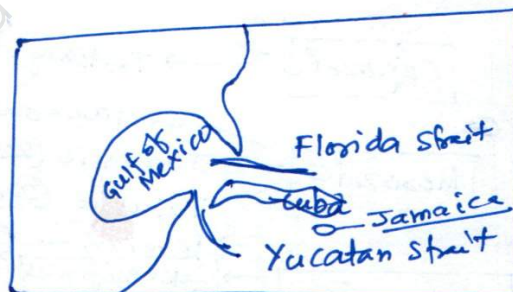 Gulf of
Mexico
Florida Strait
Cuba
Jamaica
Yucatan Strait